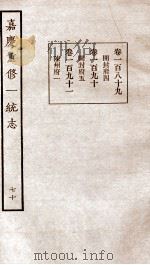 卷一百八十九
開封府四
卷一百九十
開封府五
卷一百九十一
陳州府一
嘉慶重修一統志
七十